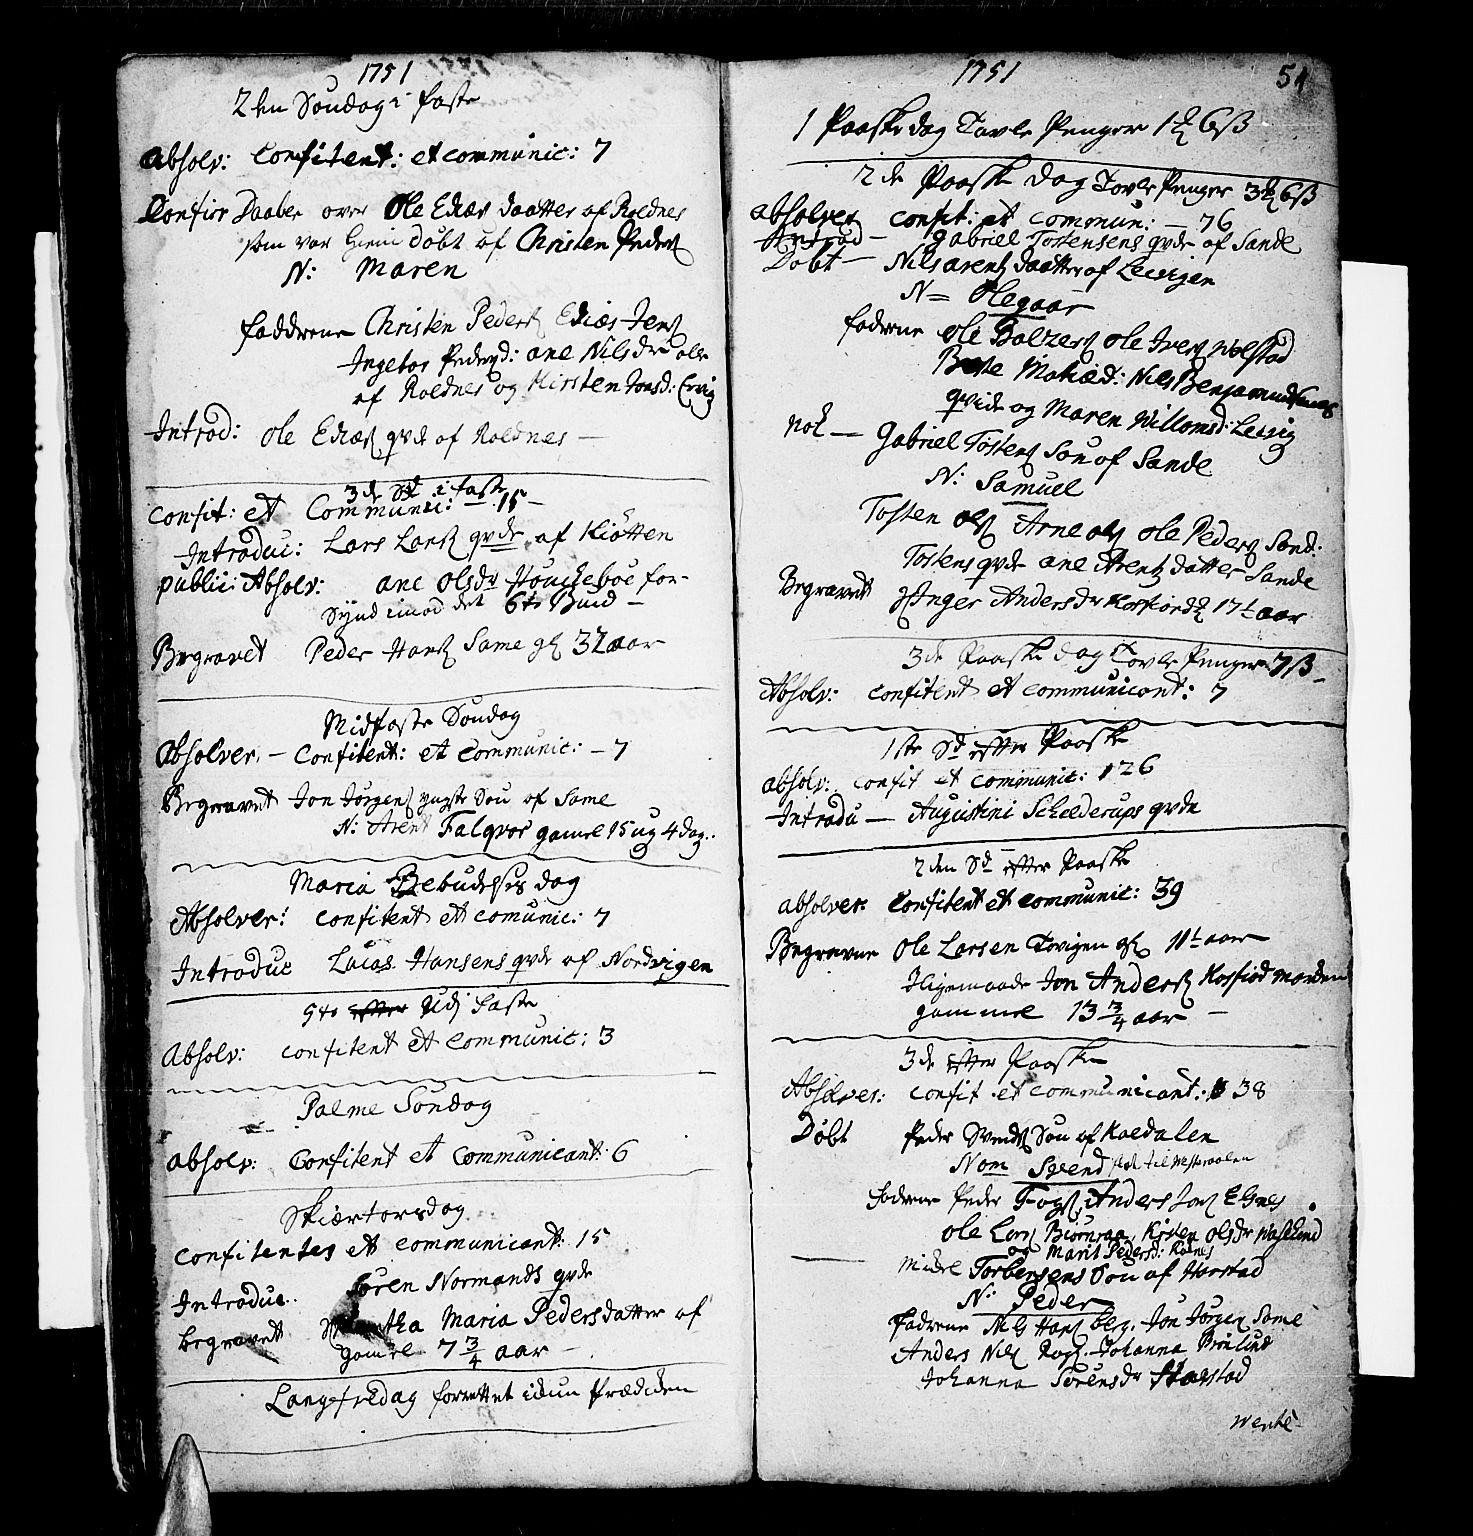 1751
2den Søndag i faste
Absolv: Confitent: et communic: 7
Confir Daaben over Ole Ediæs daatter af Roldnes
som var hiem døbt af Christen Peders
N: Maren
faddrene Christen Peders Ediæs Jens
Ingebor Pedersd: ane Nils dr alle
af Roldnes og Kirsten Jonsd:
Introd: Ole Ediæs qvde af Roldnes —
3de Sd i faste
Confit: et Communi: — 15 —
Introduc: Lars Lars qvde af Kiøtten
public: Absolv: ane Olsdr for
Synd imod det 6te Bud —
Begravet Peder Hans Same gl 32 aar
Midfaste Søndag
Absolver. — Confitent: et Communic: — 7
Begravet Jon Jørgens yngste Søn af Same
N: Arent Falqvor gamel 15 ug 4 dag.
Maria Bebudelses dag
Absolver: Confitent et Comunic: 7
Introduc Lucas Hansens qvde af Nordvigen
5te udj Faste
Absolv: Confitent et Communic: 3
Palme Søndag
Absolv: Confitent et Communicant: 6
Skiærtorsdag
Confitentes et Communicant: 15
Introduc. Søren Normands qvde
begravet Maria Pedersdatter af
gamel 7 3/4 aar —
Langfredag forrettet idun Prædiken
1751
51
1 Paaskedag Tavle Penger 1 6ß
2de Paaske Dag Tavle Penger 3 6ß
Absolver Confit: et Commun: — 76
Introd — Gabriel Tostensens qvde af Sande
Døbt — Nils arents daatter af Levigen
N = Olegaar
fadrene Ole Baltzers Ole Ivers
Maren Willomsd: Levig
not — Gabriel Tostens Søn af Sande
N: Samuel
Tosten Ols Arne Ols Ole Peders Sand:
Tostens qvde ane Arentz datter Sande
Begravet Inger Anders dr 17½ aar
3de Paaske dag Tavle Penger 7ß —
Absolv: Confitent et Communicant: 7
1ste Sd efter Paaske
absolv: Confit et Communic: 126
Introdu — Augustini Schelderups qvde
2den Sd efter Paaske
absolver: Confitent et Communic: 39
Begravne Ole Larsen gl 11½ aar
Jligemaade Jon Anders
gammel 13 3/4 aar —
3de efter Paaske
Absolver: Confit et Communicant: 38
Døbt Peder Svends Søn af Kaldalen
Nom Svend
fadrene Peder Anders Jons
Ole Lars Kirsten Olsdr
og Marit Pedersd:
Torbersens Søn af Harstad
N: Peder
Fadrene Nils Hans Jon Jørgens Same
Anders Nils Johanna
Johanna Sørensdr Harstad